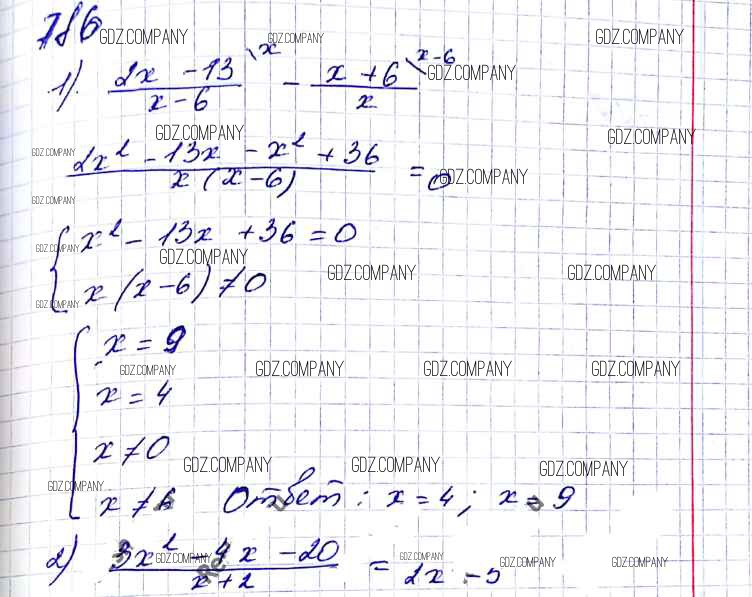 786 GDZ.COMPANY GDZ.COMPANY GDZ.COMPANY
1) (2x - 13)/(x - 6) \x - (x + 6)/x \x-6 GDZ.COMPANY
GDZ.COMPANY GDZ.COMPANY
GDZ.COMPANY (2x² - 13x - x² + 36)/(x (x - 6)) = 0 GDZ.COMPANY
GDZ.COMPANY
{ x² - 13x + 36 = 0
GDZ.COMPANY GDZ.COMPANY
x (x - 6) ≠ 0 GDZ.COMPANY GDZ.COMPANY
GDZ.COMPANY
{ x = 9
GDZ.COMPANY GDZ.COMPANY GDZ.COMPANY GDZ.COMPANY
x = 4
x ≠ 0
GDZ.COMPANY GDZ.COMPANY GDZ.COMPANY
GDZ.COMPANY
x ≠ 6 Ответ: x = 4; x = 9
2) (3x² - 4x - 20)/(x + 2) = 2x - 5
GDZ.COMPANY GDZ.COMPANY GDZ.COMPANY GDZ.COMPANY